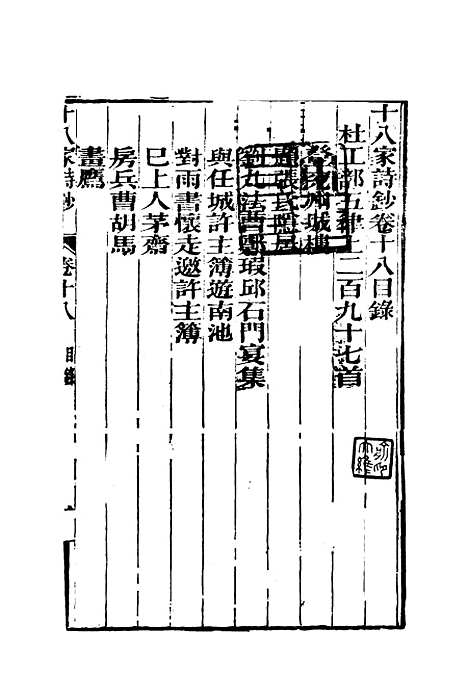 十八家詩鈔卷十八目錄
杜工部五律上二百九十七首
登兗州城樓
題張氏隱居
劉九法曹鄭瑕邱石門宴集
與任城許主簿遊南池
對雨書懷走邀許主簿
巳上人茅齋
房兵曹胡馬
畫鷹
十八家詩鈔 卷十八 目錄